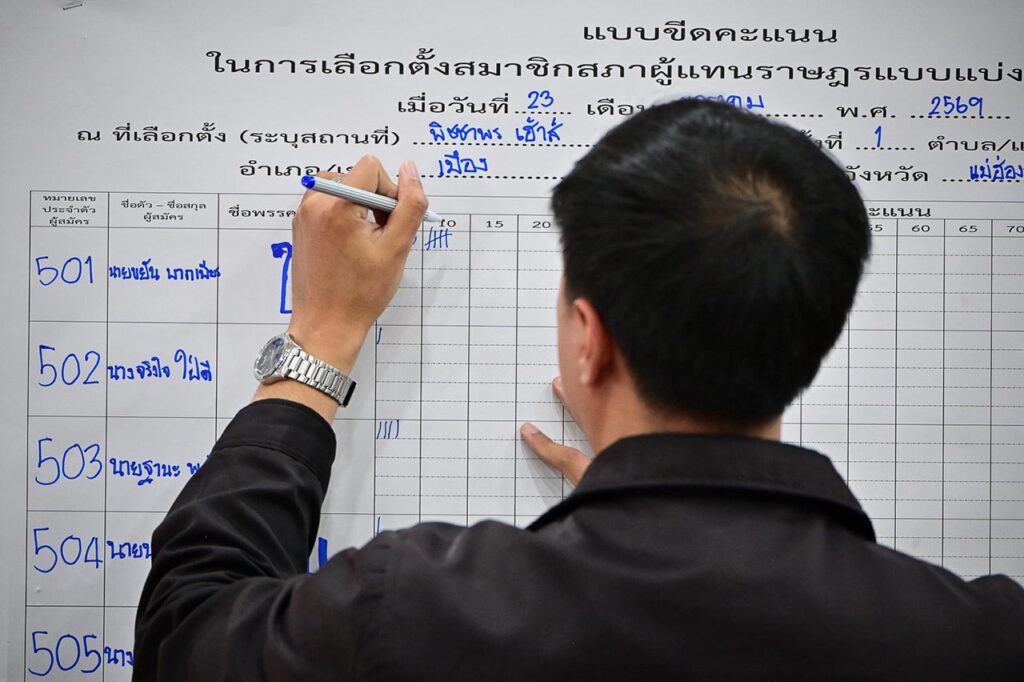 แบบขีดคะแนน
ในการเลือกตั้งสมาชิกสภาผู้แทนราษฎรแบบแบ่ง
เมื่อวันที่ 23 เดือน พ.ศ. 2569
ณ ที่เลือกตั้ง (ระบุสถานที่) พิชชาพร เฮ้าส์ ที่ 1 ตำบล/
อำเภอ/ เมือง จังหวัด แม่ฮ่อง
หมายเลข ประจำตัว ผู้สมัคร ชื่อตัว - ชื่อสกุล ผู้สมัคร ชื่อพรรค คะแนน
10 15 20 55 60 65 70
501 นายขยัน พากเพียร
502 นางจริงใจ ใฝ่ดี
503 นายฐานะ
504
505 นาง